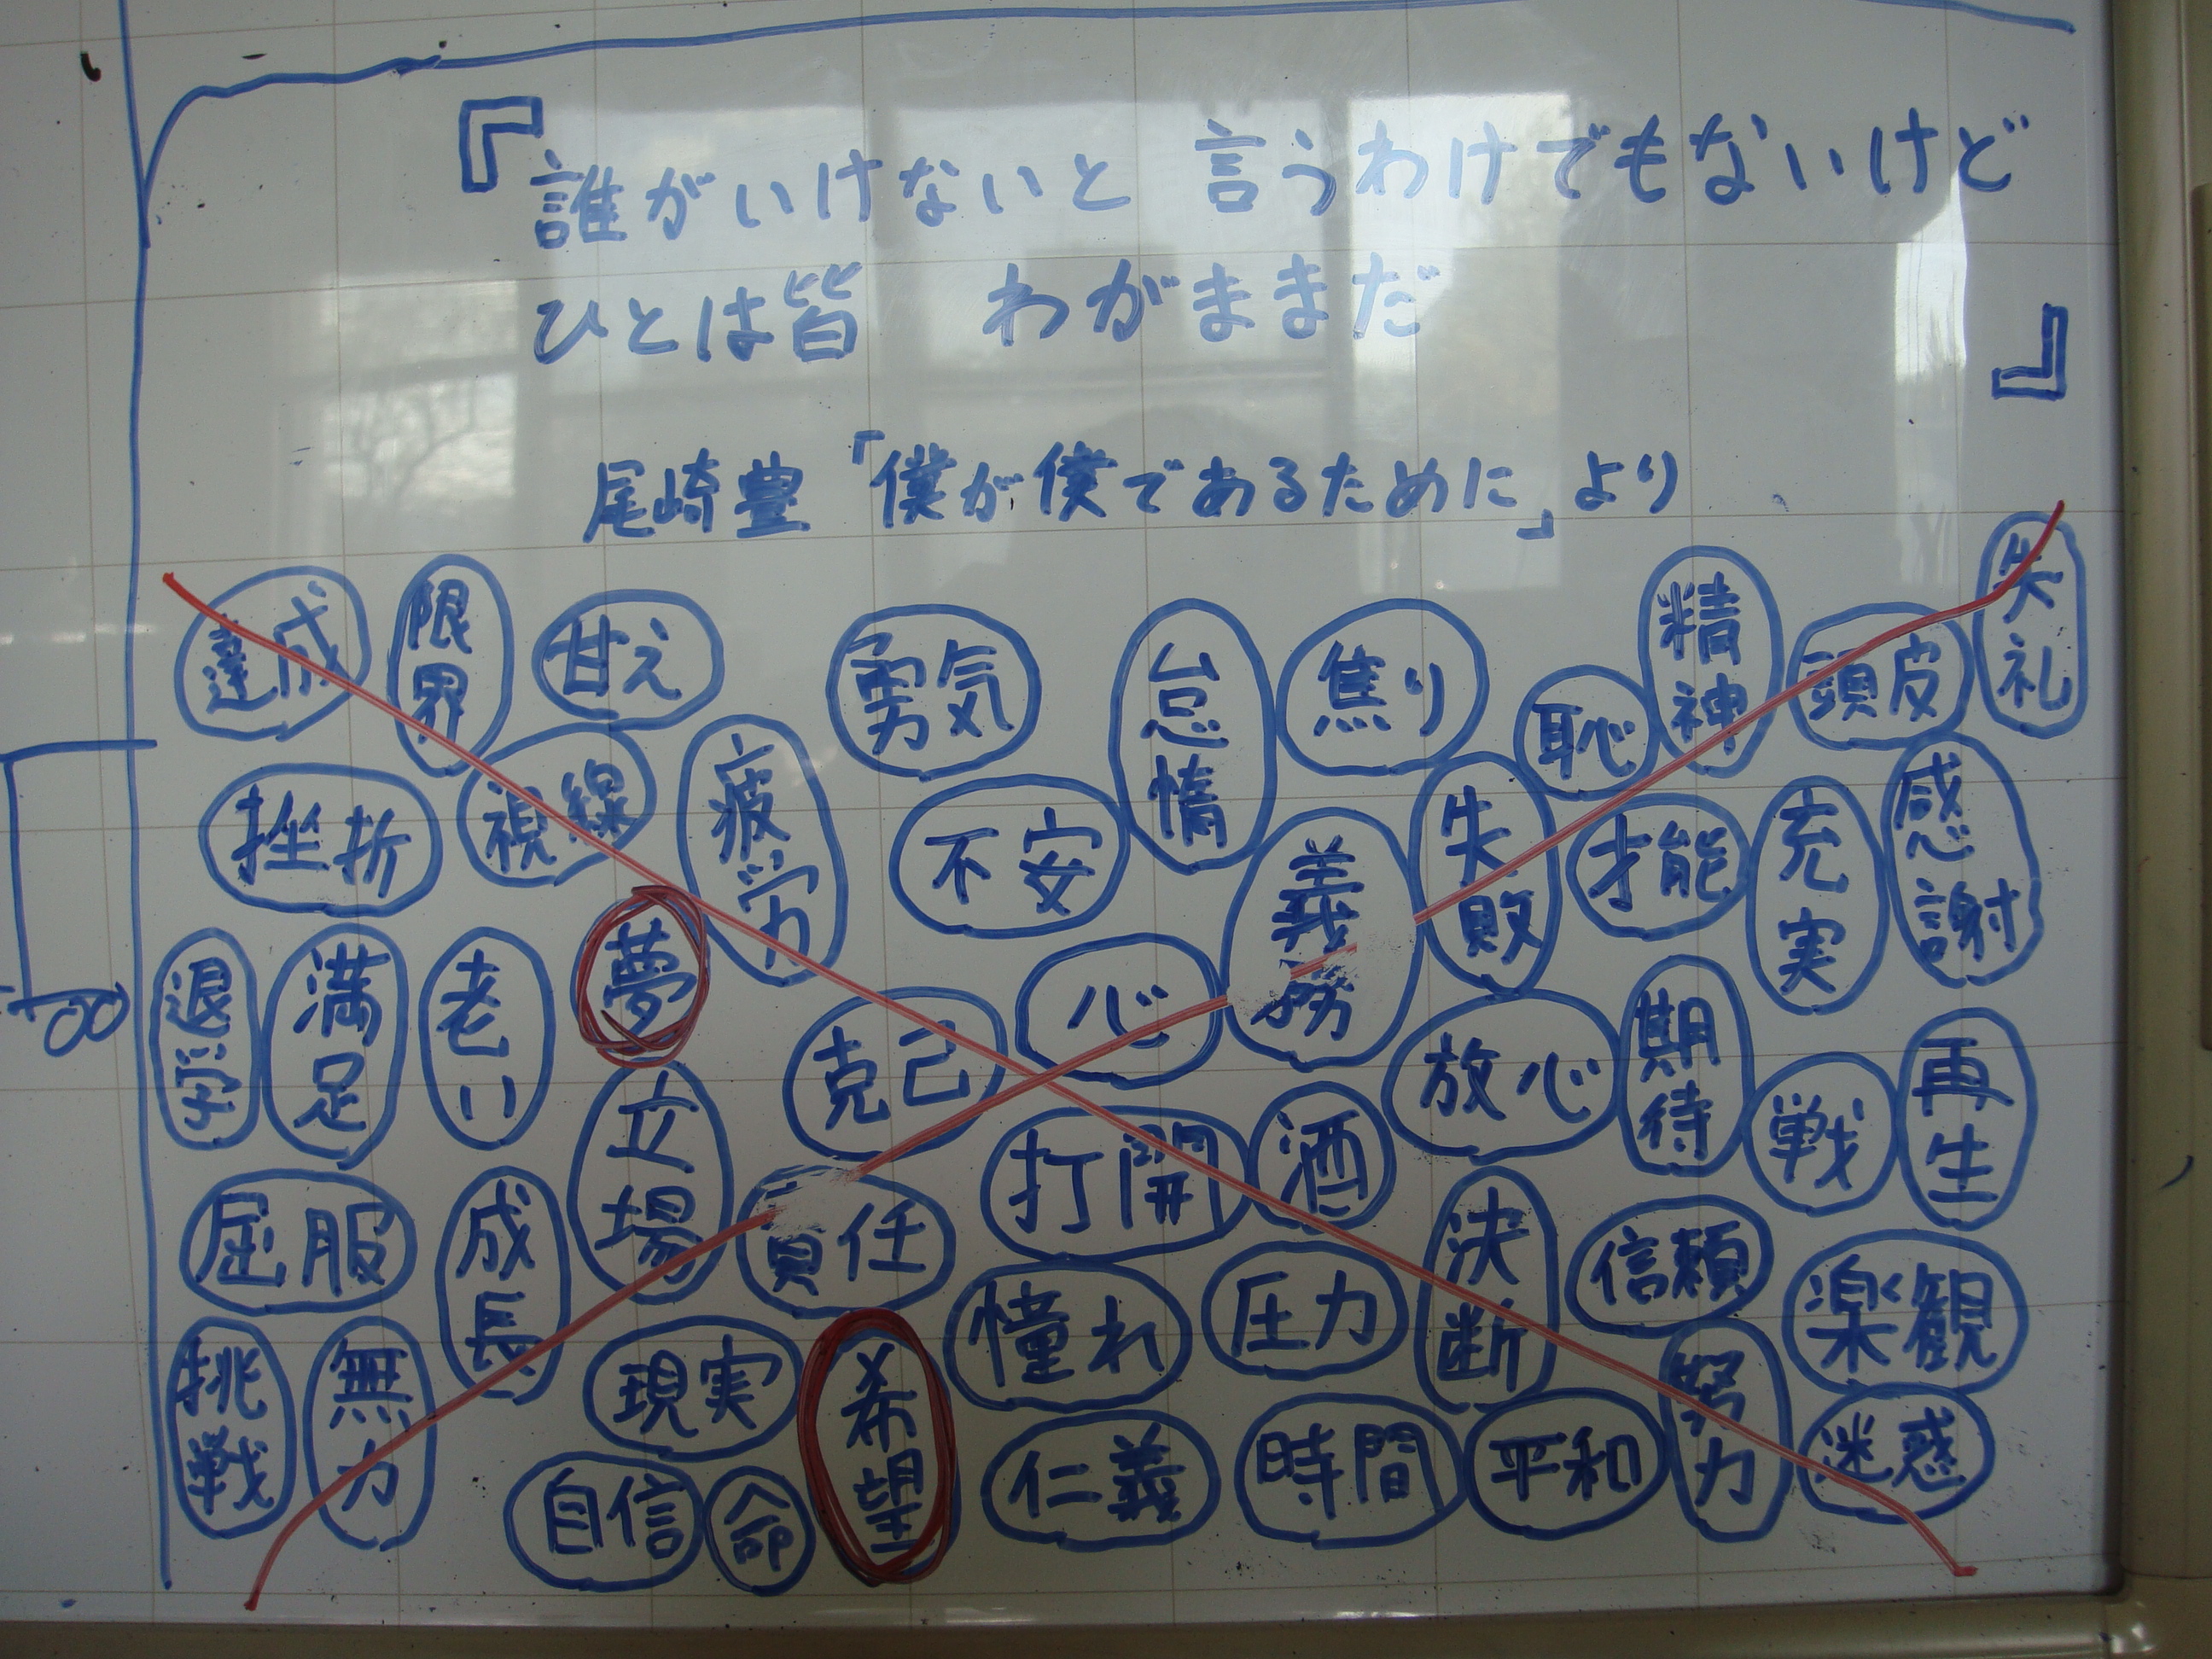 『誰がいけないと 言うわけでもないけど
ひとは皆 わがままだ 』
尾崎豊「僕が僕であるために」より
達成
限界
甘え
勇気
怠惰
焦り
恥
精神
頭皮
失礼
挫折
視線
疲労
不安
義務
失敗
才能
充実
感謝
退学
満足
老い
夢
克己
心
放心
期待
戦
再生
屈服
成長
立場
責任
打開
酒
決断
信頼
楽観
挑戦
無力
現実
希望
憧れ
圧力
努力
自信
命
仁義
時間
平和
迷惑